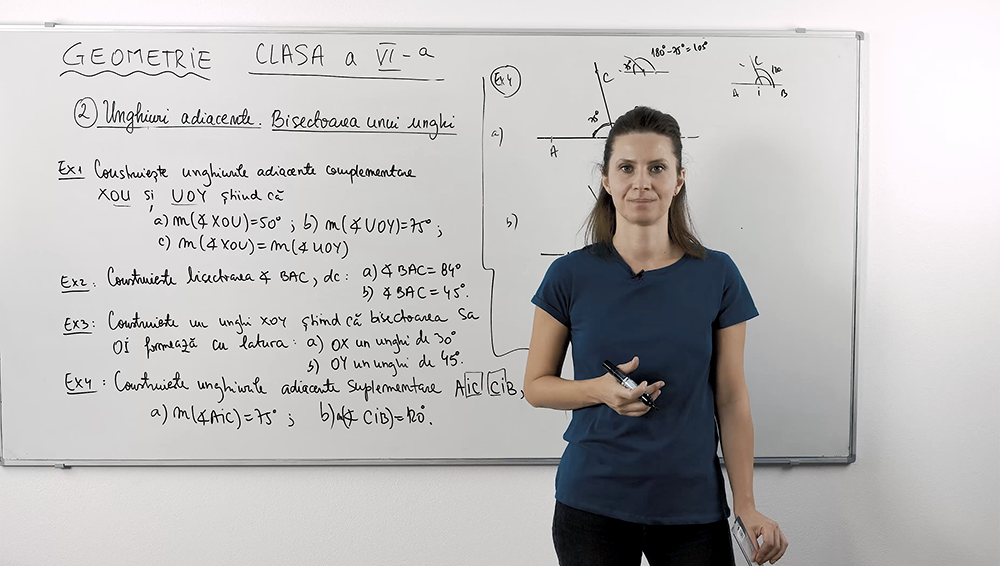 GEOMETRIE CLASA a VI-a
② Unghiuri adiacente. Bisectoarea unui unghi
Ex1 Construiește unghiurile adiacente complementare
XOU și UOY știind că
a) m(∢XOU)=50° ; b) m(∢UOY)=75° ;
c) m(∢XOU)=m(∢UOY)
Ex2: Construiește bisectoarea ∢ BAC, dc: a) ∢ BAC = 84°
b) ∢ BAC = 45°.
Ex3: Construiește un unghi XOY știind că bisectoarea sa
OI formează cu latura: a) OX un unghi de 30°
b) OY un unghi de 45°.
Ex4: Construiește unghiurile adiacente suplementare AiC, CiB,
a) m(∢AiC)=75° ; b) m(∢ CiB)=120°.
Ex4
180°-75°=105°
C
a)
A
b)
C
A i B